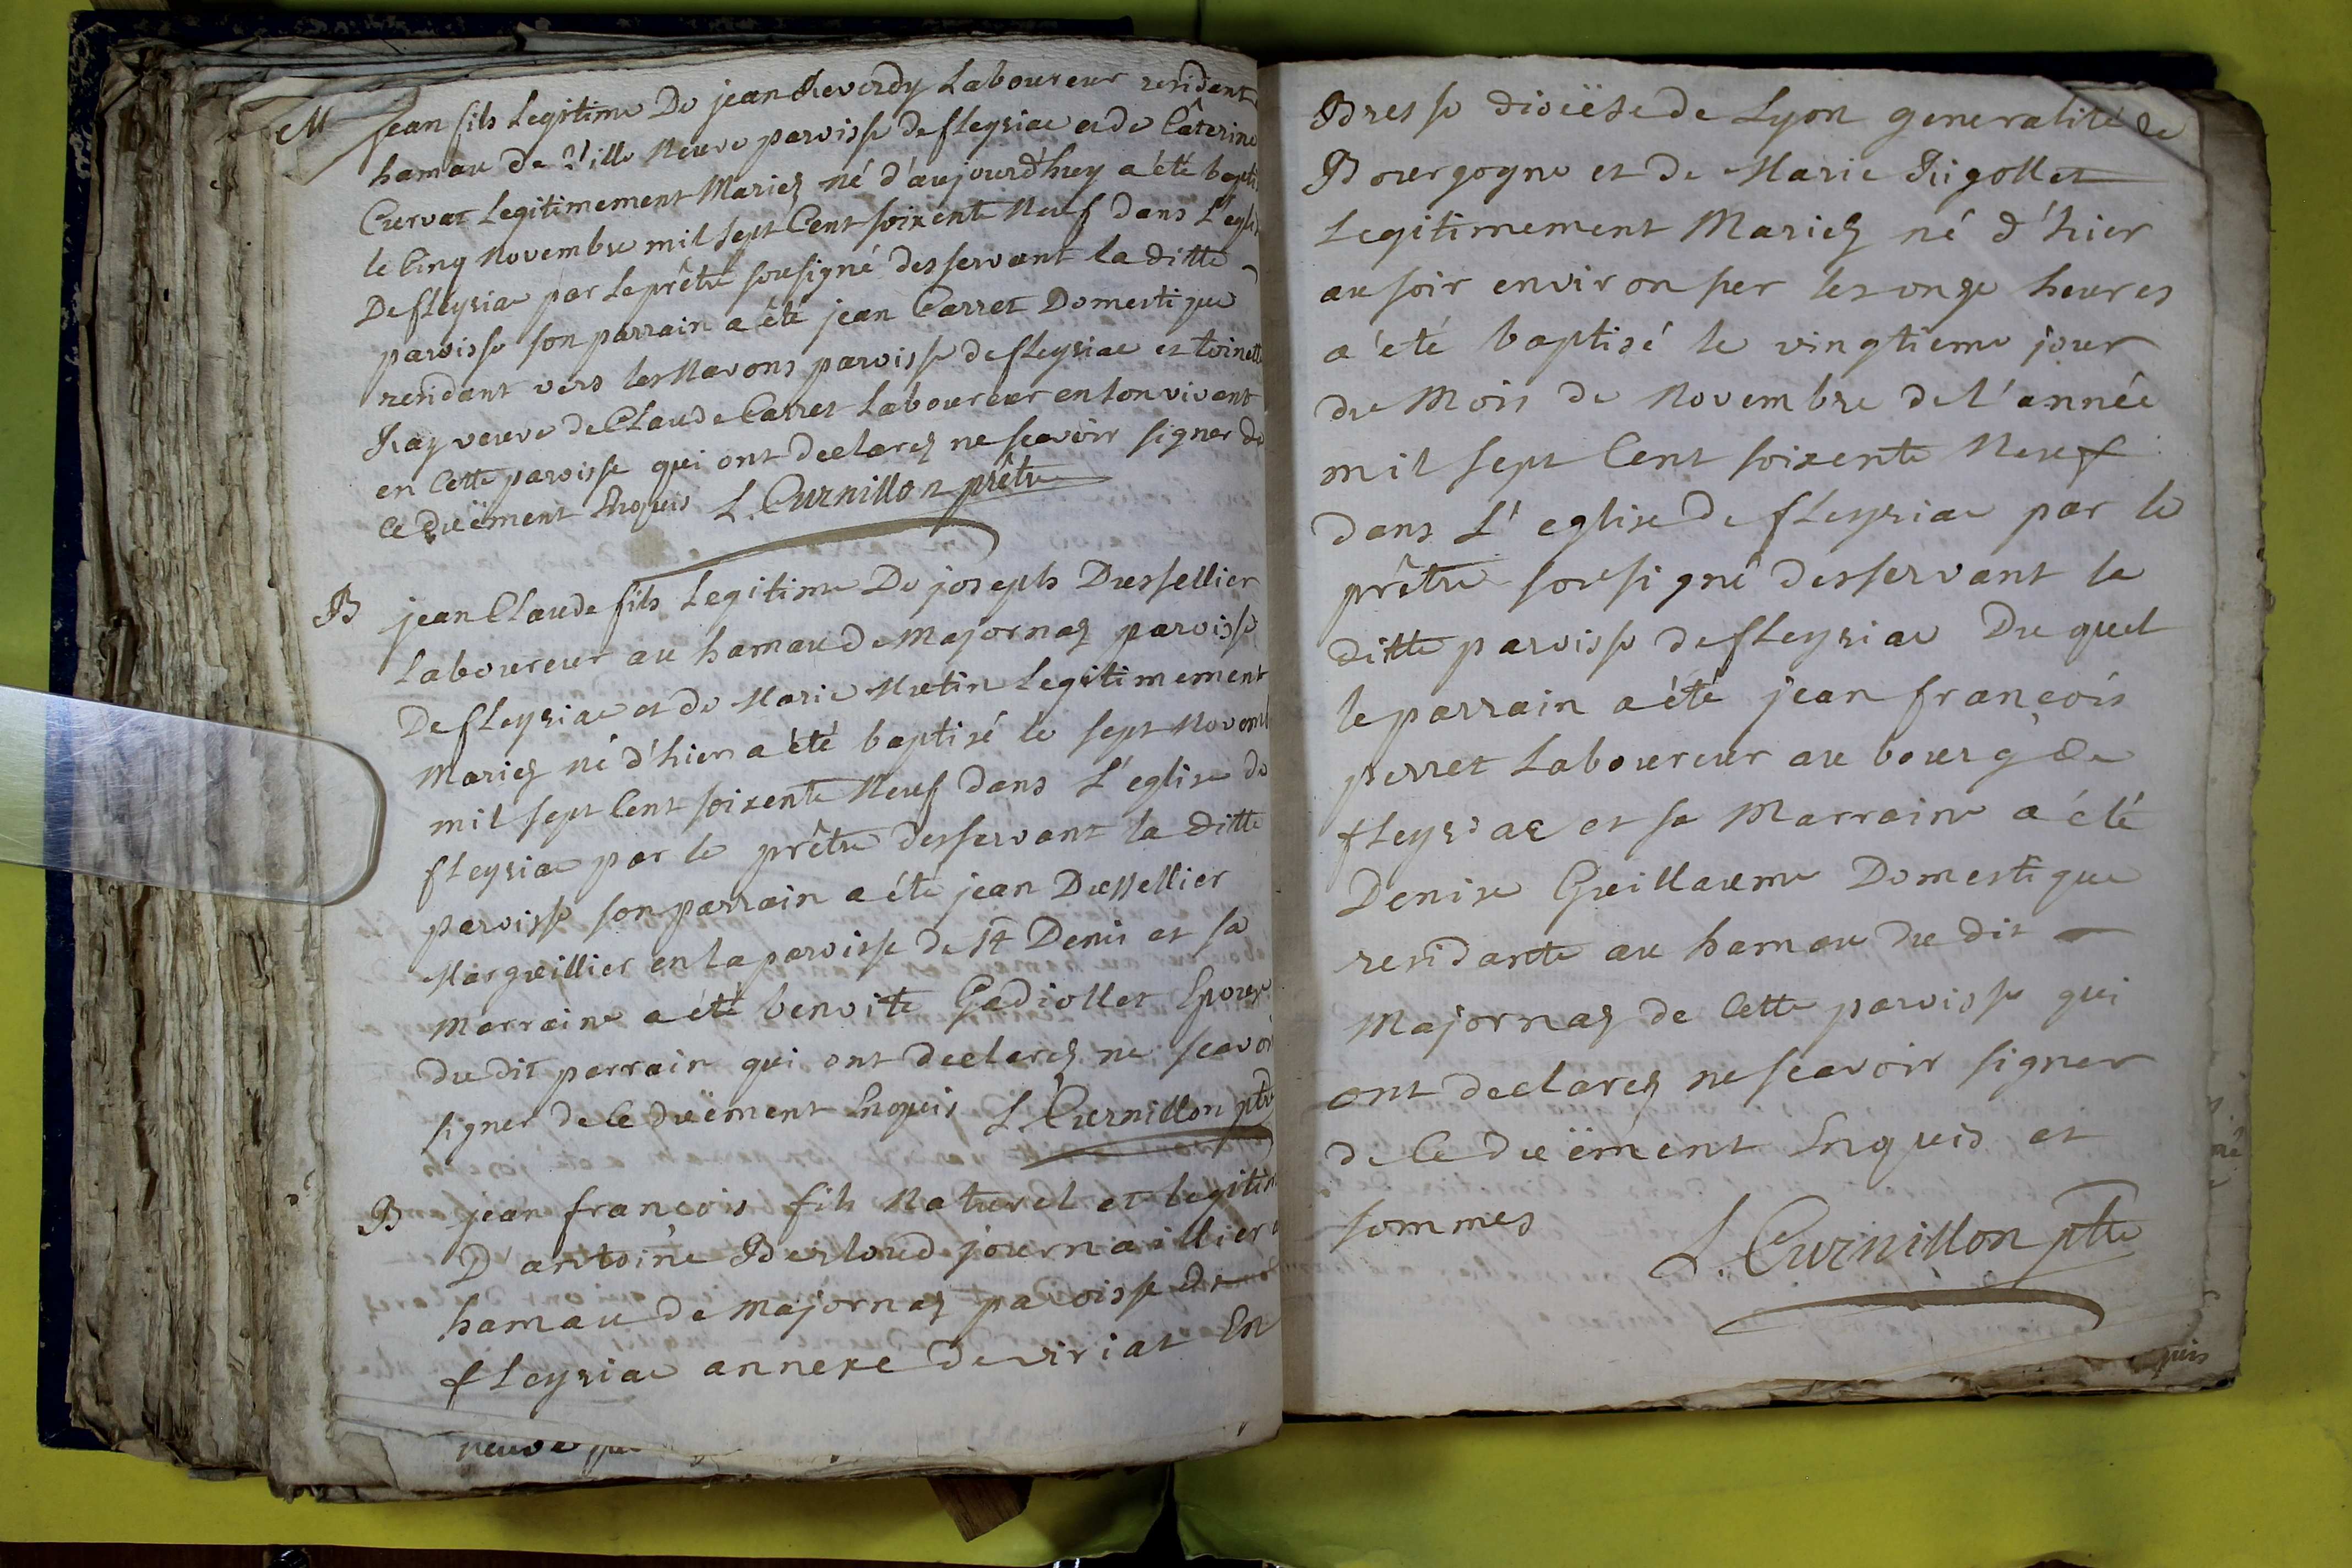 M jean fils Legitime De jean Reverdy Laboureur residant
hamau de Ville Neuve paroisse de fleyriac et de Câterine
Curvat Legitimement Mariez né d'aujourd'huy a été bapti
le Cinq Novembre mil sept Cent soixente Neuf dans L'egli
De fleyriac par Le prêtre sousigné desservant la ditte
paroisse son parrain a été jean Carret Domestique
residant vers les Mavons paroisse de fleyriac et toinette
Ray veuve de Claude Carret Laboureur en son vivant
en Cette paroisse qui ont declarez ne scavoir signer de
Ce duëment Enquis L. Curnillon prêtre
B jean Claude fils Legitime De joseph Dussellier
Laboureur au hamau de Majornaz paroisse
De fleyriac et de Marie Mutin Legitimement
Mariez né d'hier a été baptisé le sept Novemb
mil sept Cent soixente Neuf dans L'eglise de
fleyriac par le prêtre desservant la ditte
paroisse son parrain a été jean Dussellier
Marguillier en la paroisse de St Denis et sa
Marraine a été benoite Gadiollet Epouse
du dit parrain qui ont declarez ne scavoi
signer de Ce duëment Enquis L. Curnillon ptre
B jean françois fils Naturel et legitim
D'antoine Berloud journaillier
hamau de Majornaz paroisse de
fleyriac annexe de viriat En
neuve
Bresse dioëse de Lyon generalité de
Bourgogne et de Marie Rigollet
Legitimement Mariez né d'hier
au soir environ sur les onze heures
a été baptisé le vingtieme jour
du Mois de Novembre de l'année
mil sept Cent soixente Neuf
dans L'eglise de fleyriac par le
prêtre sousigné desservant la
ditte paroisse de fleyriac Du quel
le parrain a été jean françois
perret Laboureur au bourg de
fleyriac et sa Marraine a été
Denise Guillaume Domestique
residante au hamau du dit
Majornaz de Cette paroisse qui
ont declarez ne scavoir signer
de Ce duëment Enquis et
sommes
L. Curnillon ptre
quis